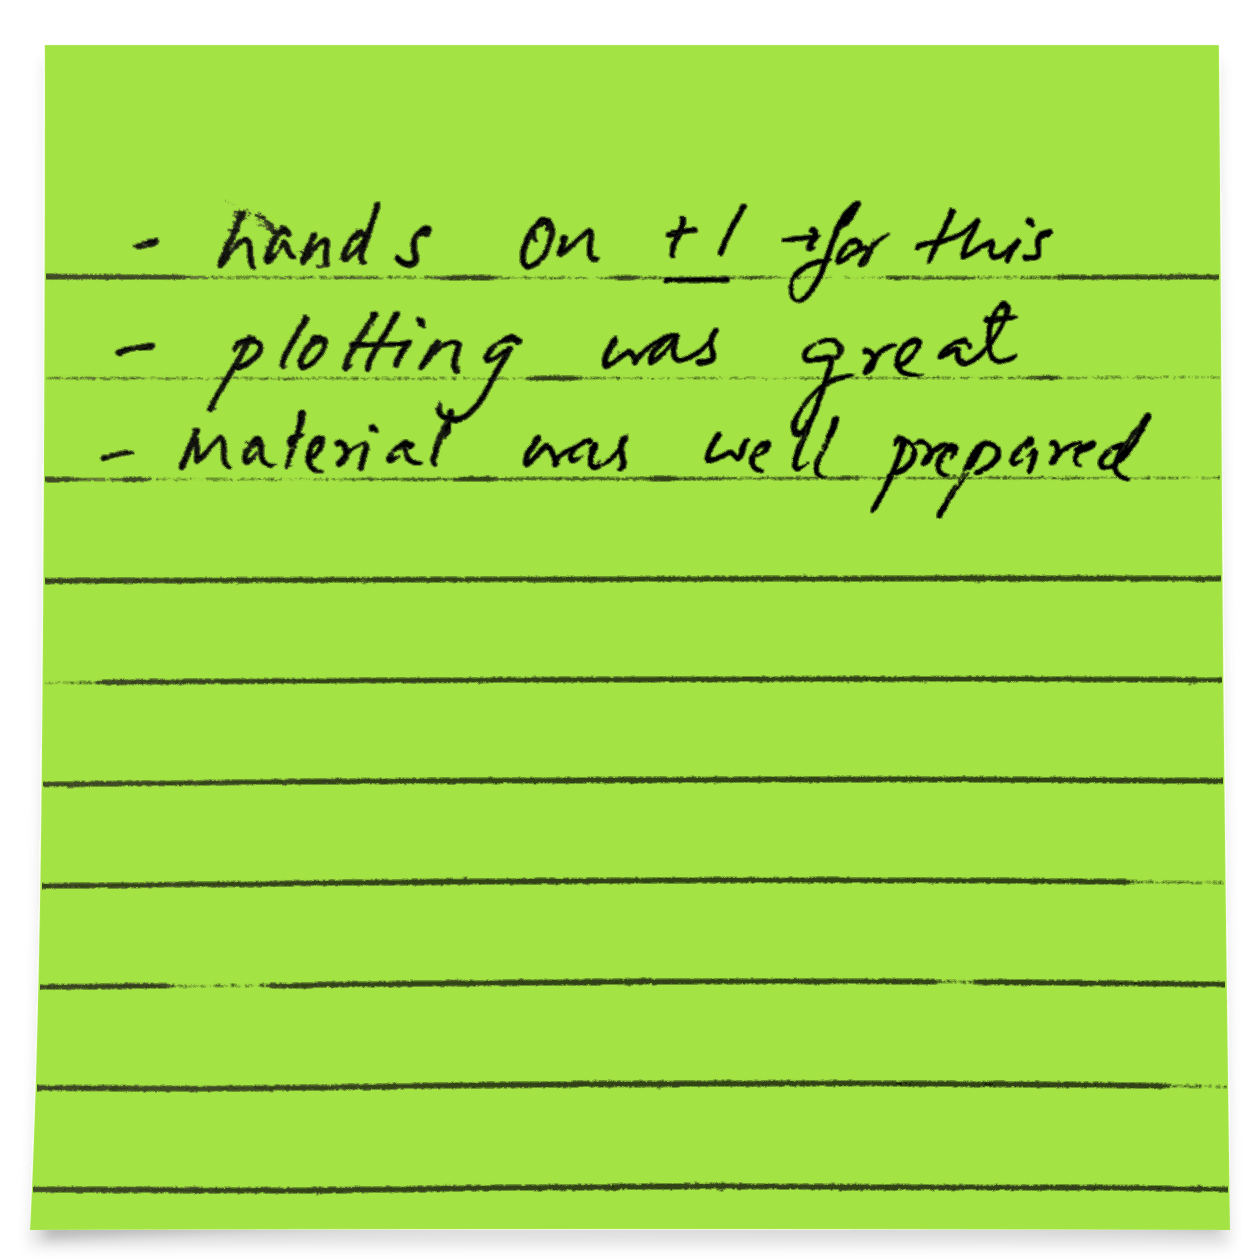 - hands on +1 → for this
- plotting was great
- Material was well prepared